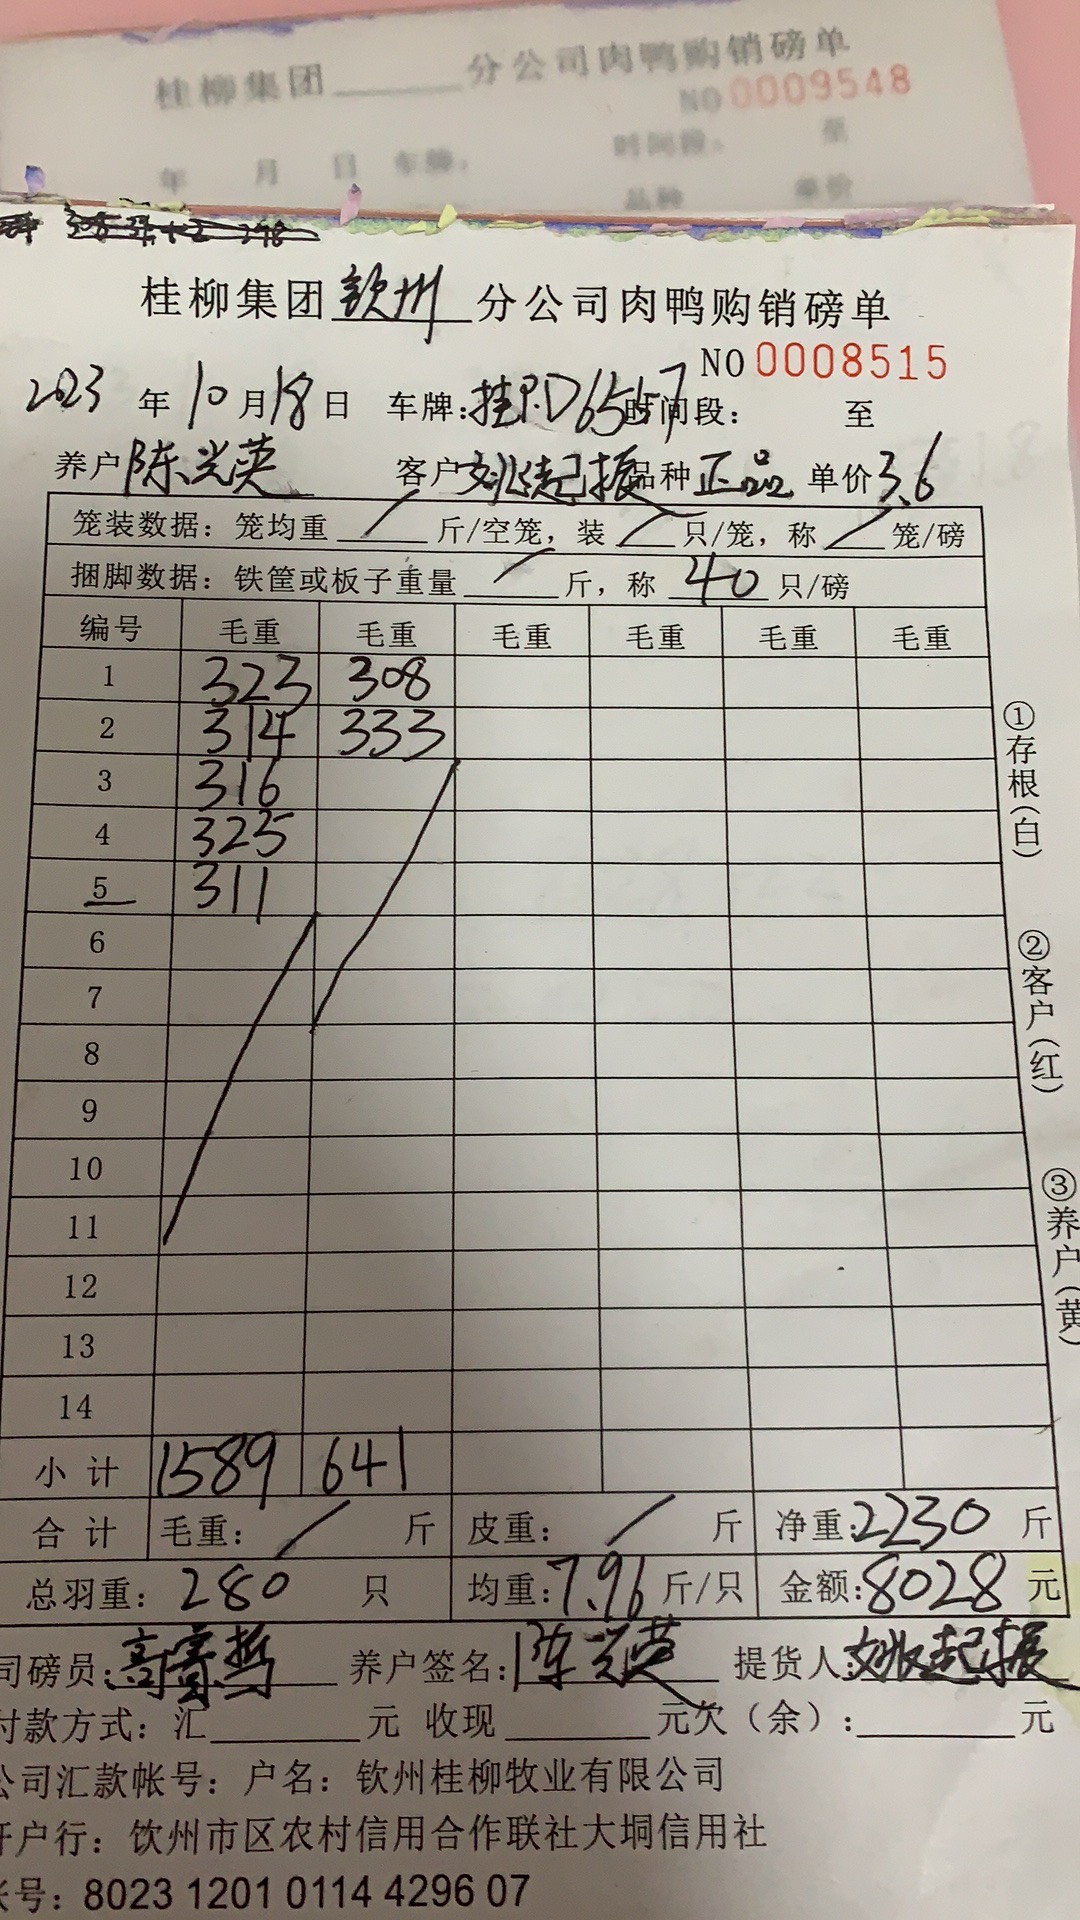 桂柳集团______分公司肉鸭购销磅单
NO 0009548
年 月 日 车牌: 时间段: 至
品种 单价
桂柳集团钦州分公司肉鸭购销磅单
NO 0008515
2023年10月18日 车牌:桂P.D6557 时间段: 至
养户陈兴英 客户姚起振 品种正品 单价3.6
笼装数据:笼均重 / 斤/空笼,装 / 只/笼,称 / 笼/磅
捆脚数据:铁筐或板子重量 / 斤,称 40 只/磅
编号 毛重 毛重 毛重 毛重 毛重 毛重
1 323 308
2 314 333
3 316
4 325
5 311
6
7
8
9
10
11
12
13
14
小计 1589 641
合计 毛重: / 斤 皮重: / 斤 净重:2230 斤
总羽重: 280 只 均重:7.96 斤/只 金额:8028 元
司磅员: 养户签名:陈兴英 提货人:姚起振
付款方式:汇______元 收现______元欠(余):______元
公司汇款帐号:户名:钦州桂柳牧业有限公司
开户行:钦州市区农村信用合作联社大垌信用社
帐号:8023 1201 0114 4296 07
①存根(白)
②客户(红)
③养户(黄)